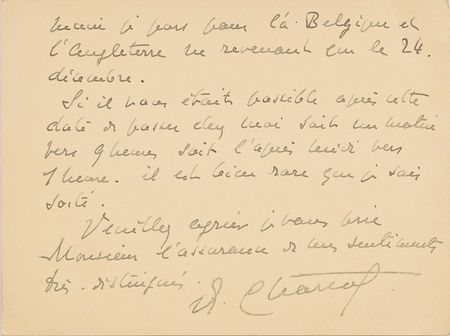 mais je pars pour la Belgique et
l'Angleterre ne revenant que le 24.
décembre.
Si il vous était possible après cette
date de passer chez moi soit un matin
vers 9 heures soit l'après midi vers
1 heure. il est bien rare que je sois
sorti.
Veuillez agréer je vous prie
Monsieur l'assurance de mes sentiments
très distingués.
J. Charcot